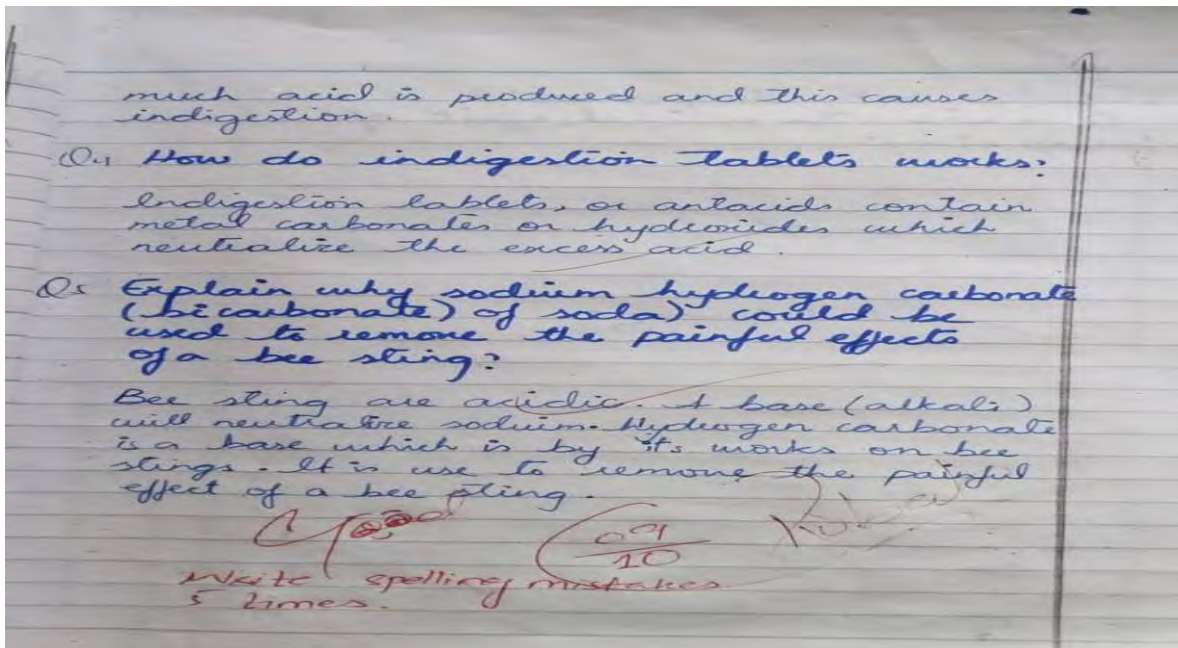 much acid is produced and this causes
indigestion.
Q4 How do indigestion tablets works?
Indigestion tablets, or antacids contain
metal carbonates or hydroxides which
neutralize the excess acid.
Q5 Explain why sodium hydrogen carbonate
(bicarbonate) of soda) could be
used to remove the painful effects
of a bee sting?
Bee sting are acidic. A base (alkali)
will neutralize sodium. Hydrogen carbonate
is a base which is by it's works on bee
stings. It is use to remove the painful
effect of a bee sting.
Good
09/10
Write spelling mistakes
5 times.